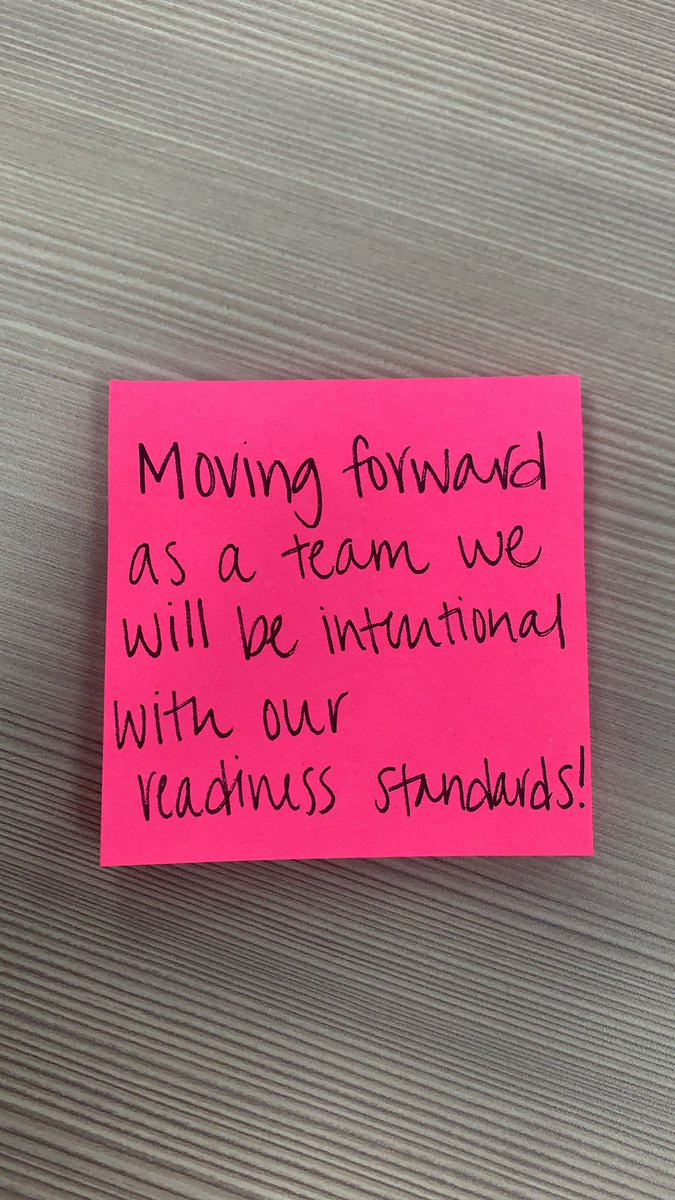 Moving forward
as a team we
will be intentional
with our
readiness standards!